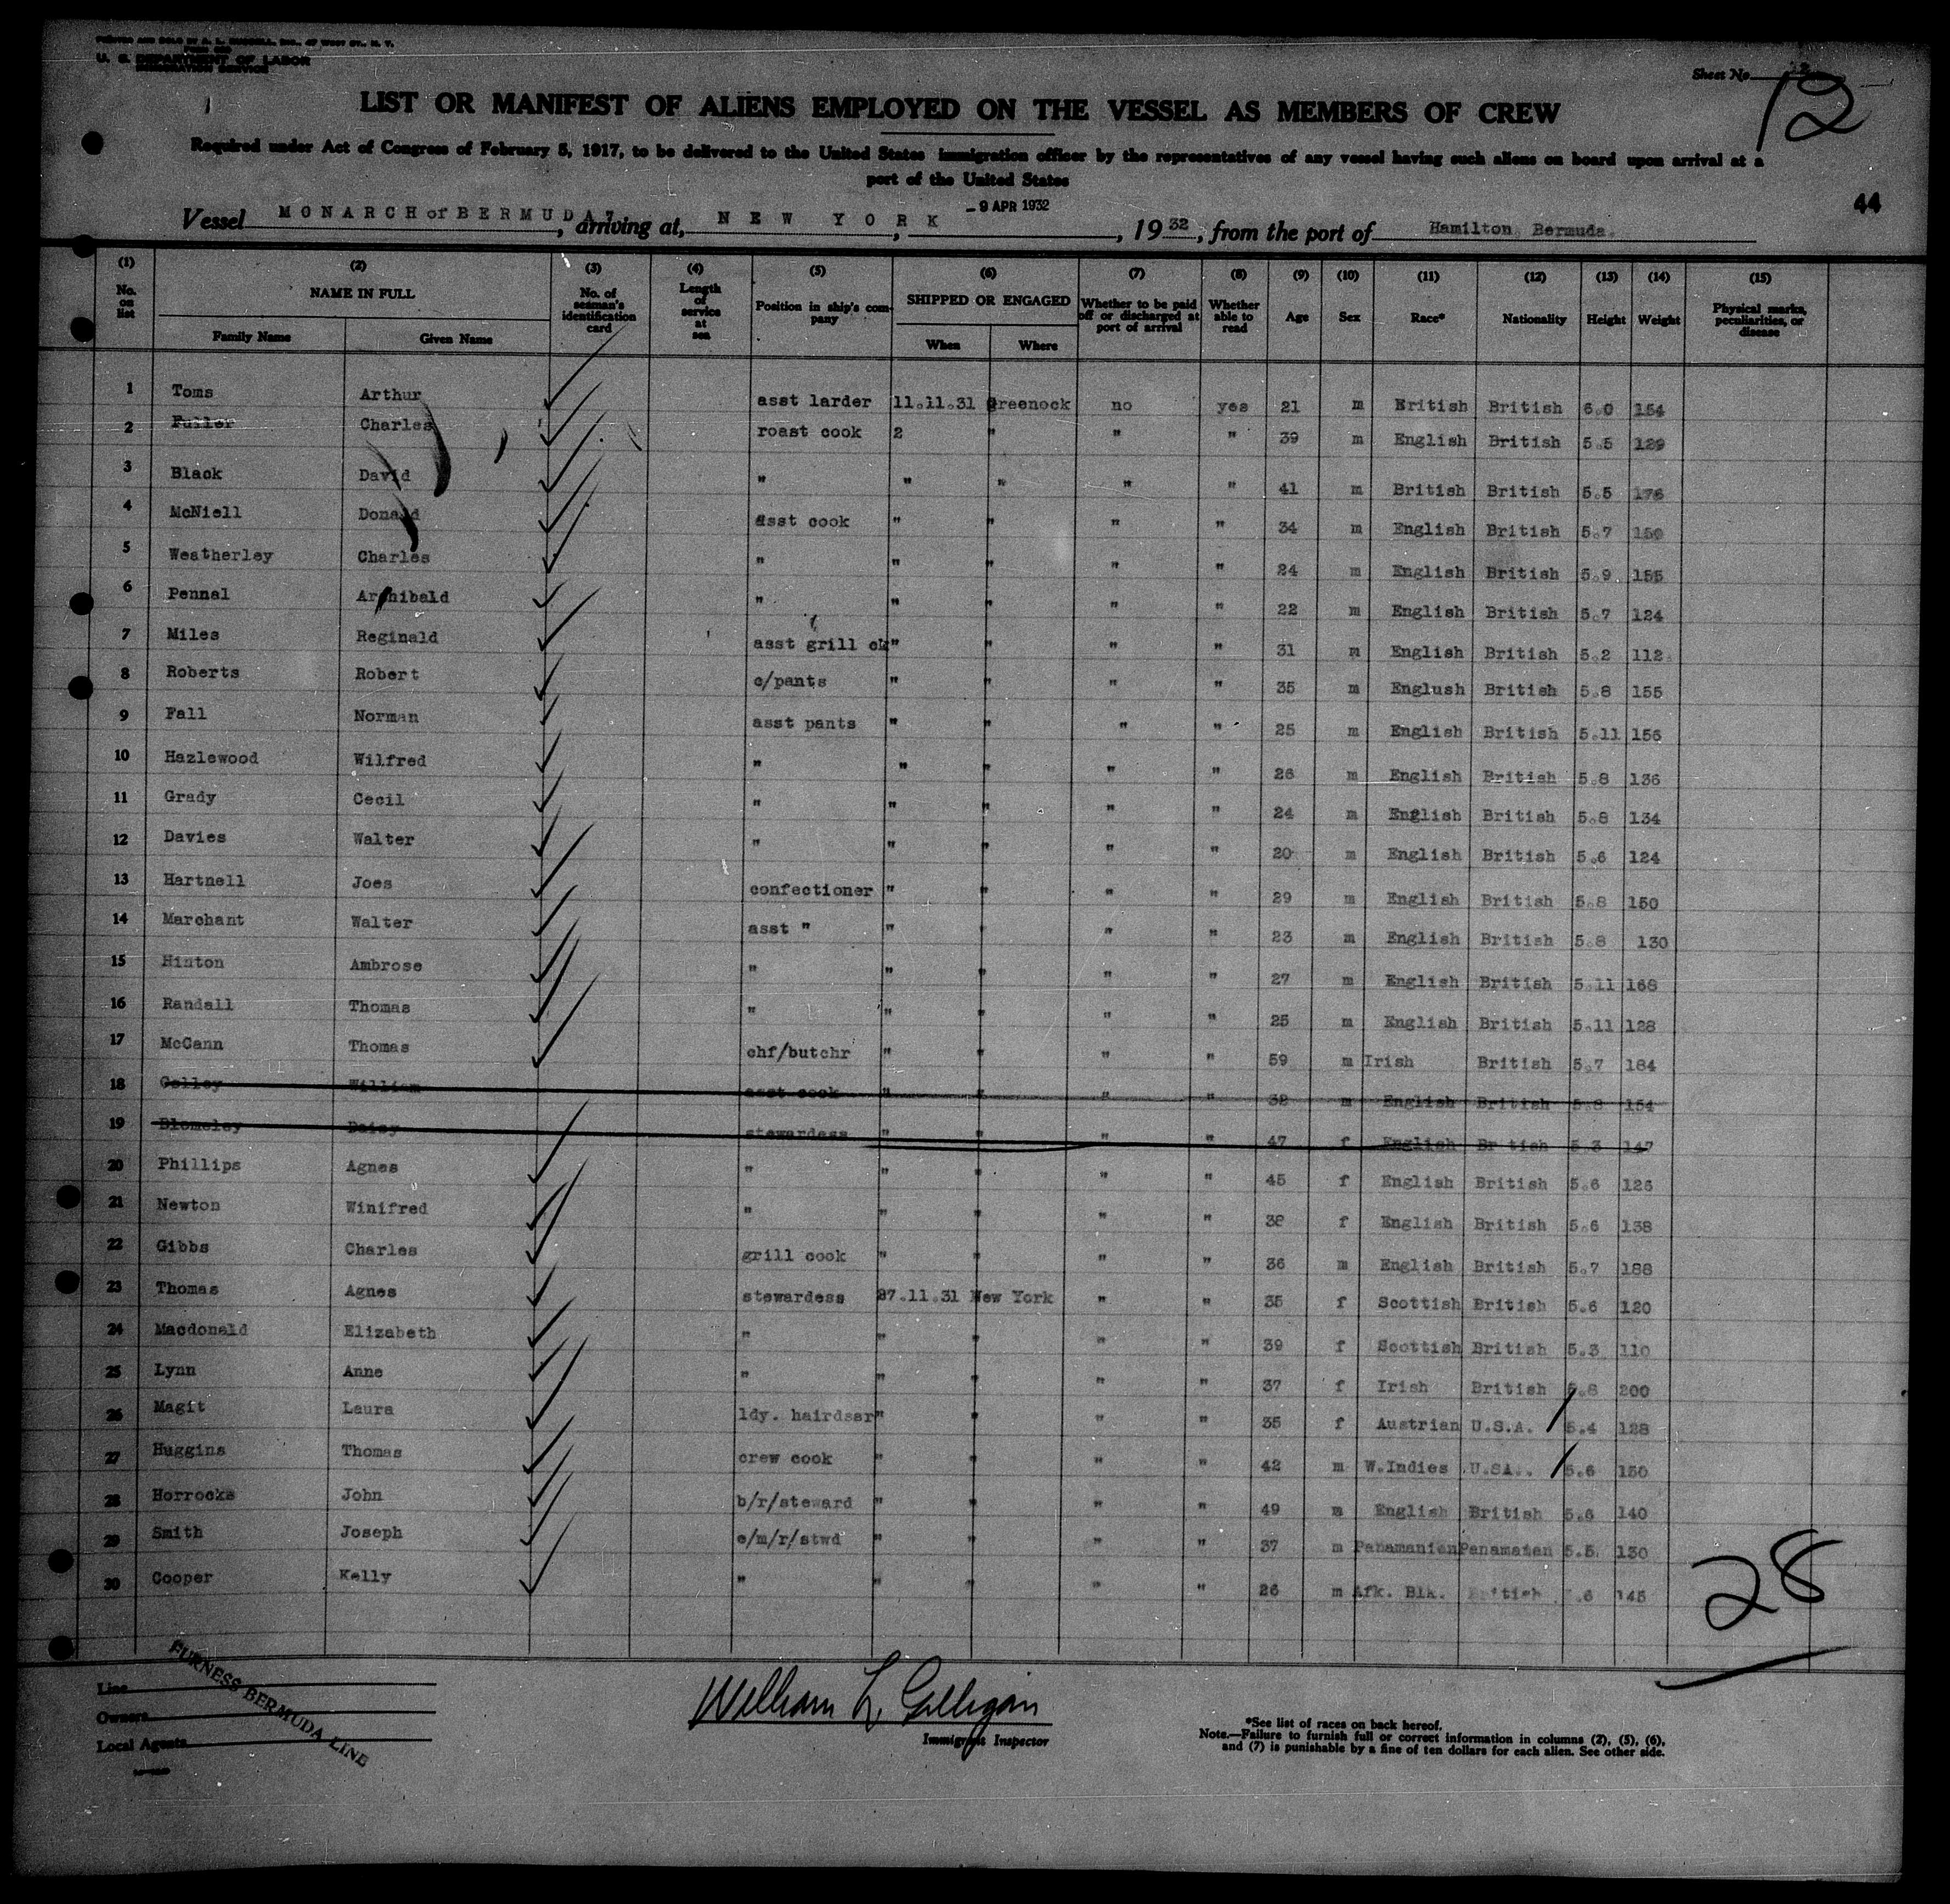 PRINTED AND SOLD BY
U. S. DEPARTMENT OF LABOR
IMMIGRATION SERVICE
Sheet No. 12
12
LIST OR MANIFEST OF ALIENS EMPLOYED ON THE VESSEL AS MEMBERS OF CREW
Required under Act of Congress of February 5, 1917, to be delivered to the United States immigration officer by the representatives of any vessel having such aliens on board upon arrival at a
port of the United States
44
Vessel MONARCH of BERMUDA, arriving at, NEW YORK, - 9 APR 1932, 1932, from the port of Hamilton, Bermuda.
(1) (2) (3) (4) (5) (6) (7) (8) (9) (10) (11) (12) (13) (14) (15)
No. on list NAME IN FULL Family Name Given Name No. of seaman's identification card Length of service at sea Position in ship's company SHIPPED OR ENGAGED When Where Whether to be paid off or discharged at port of arrival Whether able to read Age Sex Race* Nationality Height Weight Physical marks, peculiarities, or disease
1 Toms Arthur asst larder 11.11.31 Greenock no yes 21 m British British 6.0 154
2 Fuller Charles roast cook 2 " " " 39 m English British 5.5 129
3 Black David " " " " " 41 m British British 5.5 176
4 McNiell Donald asst cook " " " " 34 m English British 5.7 150
5 Weatherley Charles " " " " " 24 m English British 5.9 155
6 Pennal Archibald " " " " " 22 m English British 5.7 124
7 Miles Reginald asst grill ck " " " " 31 m English British 5.2 112
8 Roberts Robert c/pants " " " " 35 m Englush British 5.8 155
9 Fall Norman asst pants " " " " 25 m English British 5.11 156
10 Hazlewood Wilfred " " " " " 26 m English British 5.8 136
11 Grady Cecil " " " " " 24 m English British 5.8 134
12 Davies Walter " " " " " 20 m English British 5.6 124
13 Hartnell Joes confectioner " " " " 29 m English British 5.8 150
14 Marchant Walter asst " " " " " 23 m English British 5.8 130
15 Hinton Ambrose " " " " " 27 m English British 5.11 168
16 Randall Thomas " " " " " 25 m English British 5.11 128
17 McCann Thomas chf/butchr " " " " 59 m Irish British 5.7 184
18 Colley William asst cook " " " " 32 m English British 5.8 154
19 Blomeley Daisy stewardess " " " " 47 f English British 5.3 147
20 Phillips Agnes " " " " " 45 f English British 5.6 126
21 Newton Winifred " " " " " 38 f English British 5.6 138
22 Gibbs Charles grill cook " " " " 36 m English British 5.7 188
23 Thomas Agnes stewardess 27.11.31 New York " " 35 f Scottish British 5.6 120
24 Macdonald Elizabeth " " " " " 39 f Scottish British 5.3 110
25 Lynn Anne " " " " " 37 f Irish British 5.8 200
26 Magit Laura ldy. hairdssr " " " " 35 f Austrian U.S.A. 5.4 128
27 Huggins Thomas crew cook " " " " 42 m W.Indies U.SA.. 5.6 150
28 Horrocks John b/r/steward " " " " 49 m English British 5.6 140
29 Smith Joseph e/m/r/stwd " " " " 37 m Panamanien Panamaien 5.5 130
30 Cooper Kelly " " " " " 26 m Afk. Blk. British .6 145
28
Line
Owners
Local Agents
FURNESS BERMUDA LINE
William L. Gilligan
Immigrant Inspector
*See list of races on back hereof.
Note.—Failure to furnish full or correct information in columns (2), (5), (6),
and (7) is punishable by a fine of ten dollars for each alien. See other side.